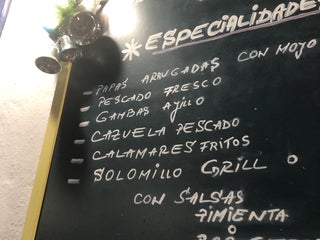 * ESPECIALIDADES
- PAPAS ARRUGADAS CON MOJO
- PESCADO FRESCO
- GAMBAS AJILLO
- CAZUELA PESCADO
- CALAMARES FRITOS
- SOLOMILLO GRILL O
CON SALSAS
PIMIENTA
O